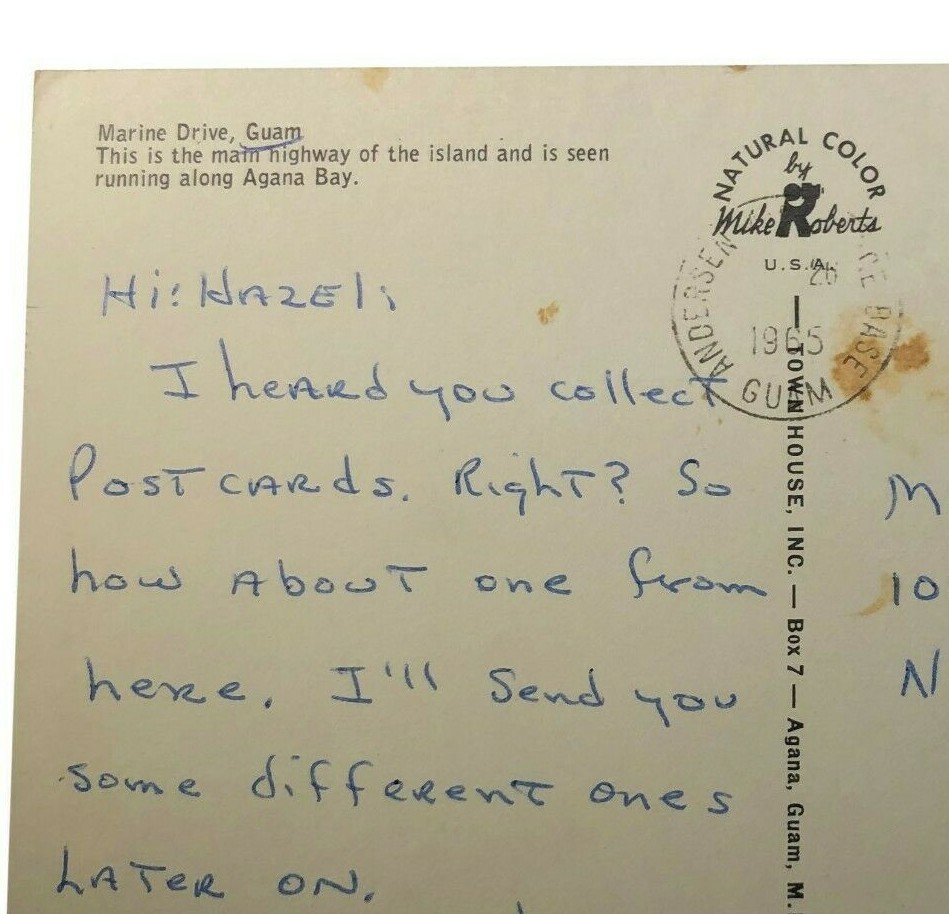 Marine Drive, Guam
This is the main highway of the island and is seen
running along Agana Bay.
NATURAL COLOR
by
Mike Roberts
U.S.A.
ANDERSEN
CE BASE
26
1965
GUAM
Hi! HAZEl:
I heARd you collecT
PosT cARds. RighT? So
how AbouT one from
heRe. I'll Send you
some diffeRenT ones
LATeR ON.
— TOWN HOUSE, INC. — Box 7 — Agana, Guam, M.
M
10
N